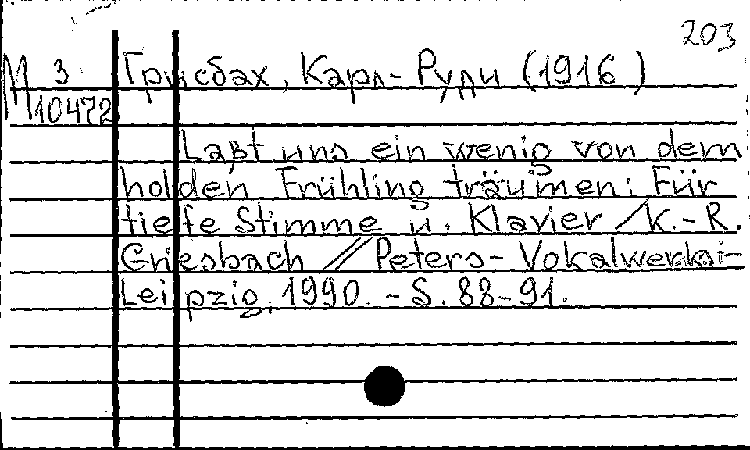 203
М 3 Грисбах, Карл-Руди (1916 )
10472
Laßt uns ein wenig von dem
holden Frühling träumen: Für
tiefe Stimme u. Klavier / K.-R.
Griesbach // Peters-Vokalwerke.-
Leipzig, 1990. - S. 88-91.